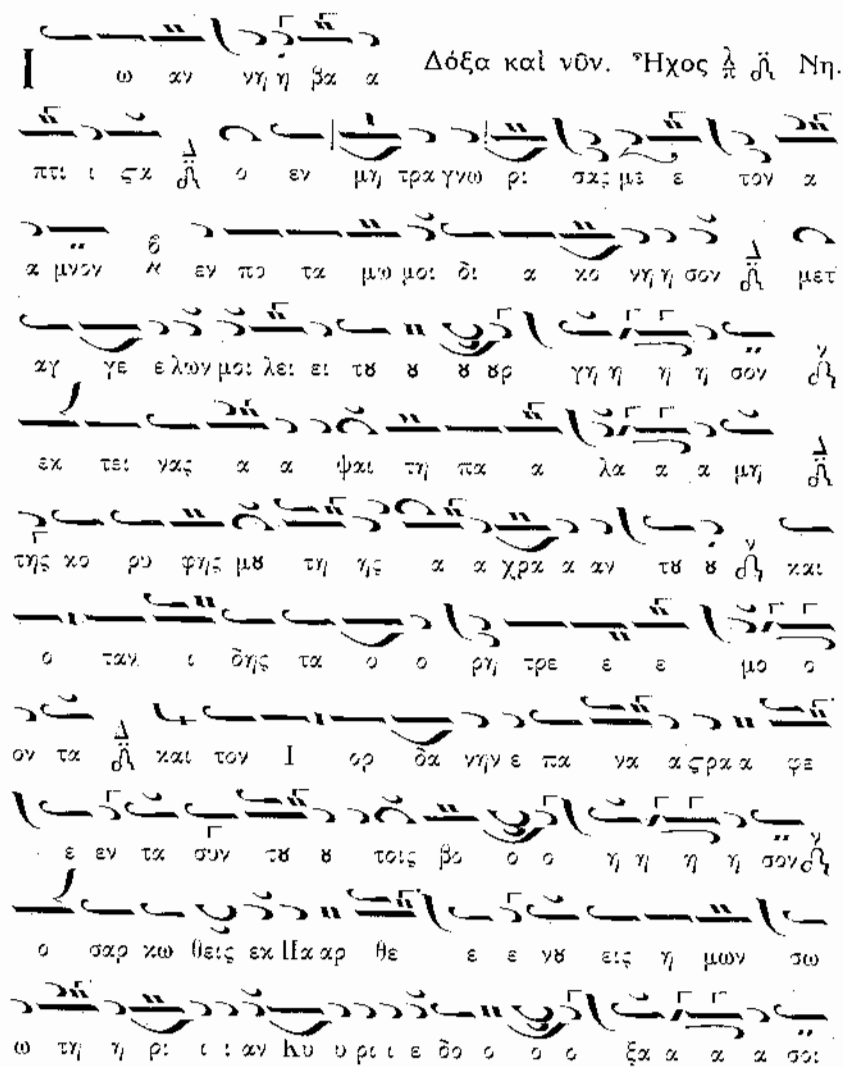 Ι ω αν νη η βα α Δόξα καὶ νῦν. Ἦχος λ π Νη.
πτι ι ϛα ο εν μη τρα γνω ρι σας με ε τον α
α μνον εν πο τα μω μοι δι α κο νη η σον μετ
αγ γε ε λων μοι λει ει τȣ ȣ ȣ ȣρ γη η η η σον
εκ τει νας α α ψαι τη πα α λα α α μη
της κο ρυ φης μȣ τη ης α α χρα α αν τȣ ȣ και
ο ταν ι δης τα ο ο ρη τρε ε ε μο ο
ον τα και τον Ι ορ δα νην ε πα να α ϛρα α φε
ε εν τα συν τȣ ȣ τοις βο ο ο η η η η σον
ο σαρ κω θεις εκ Πα αρ θε ε ε νȣ εις η μων σω
ω τη η ρι ι ι αν Κυ υ ρι ι ε δο ο ο ο ξα α α α σοι